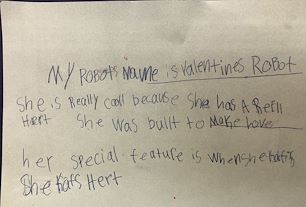 My ROBOTS Name is Valentines ROBOT
She is Really cool because She has A Refll
Hert She was built to Make Love
her special feature is when she
She Hert